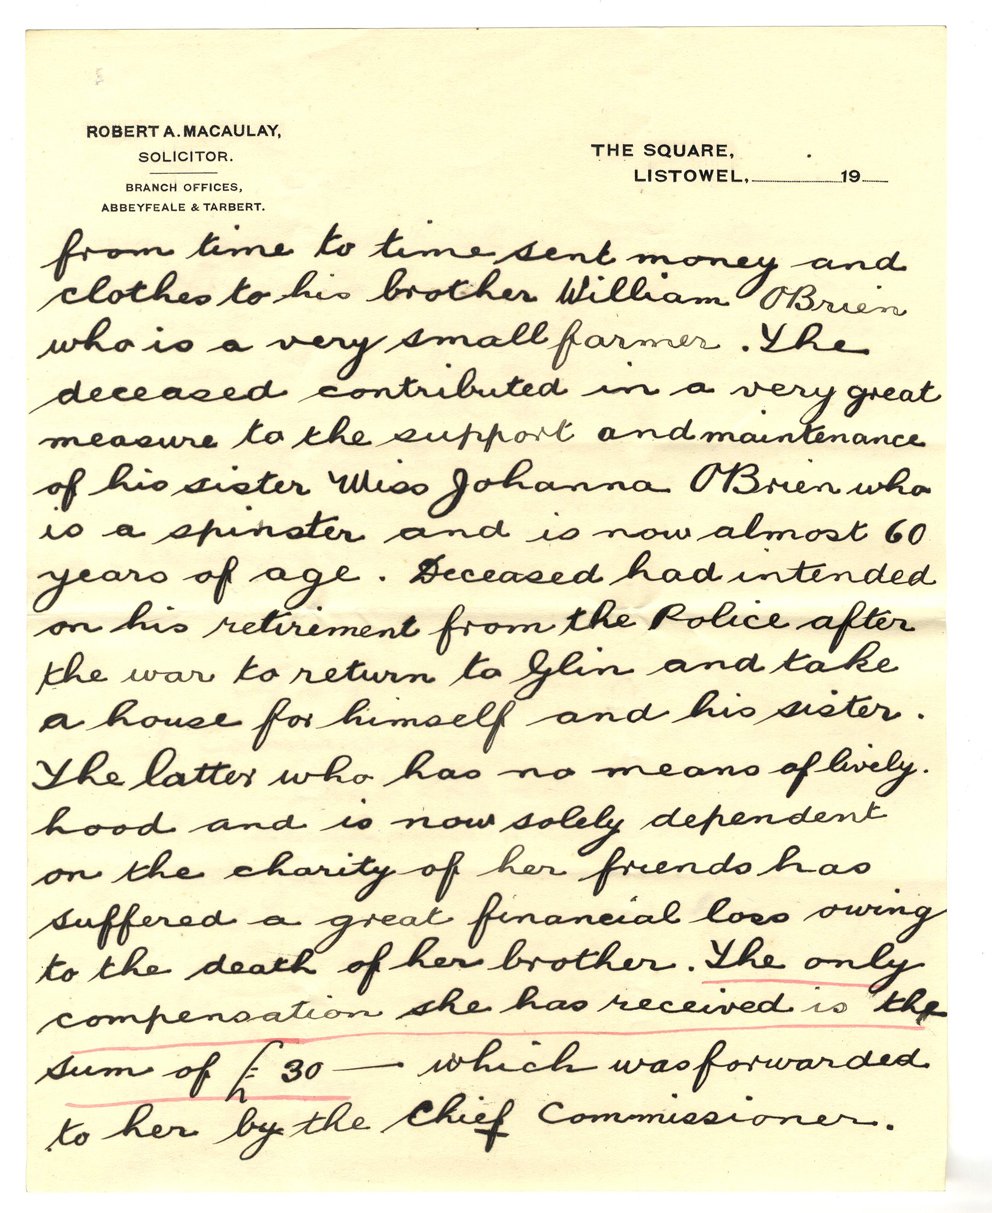 ROBERT A. MACAULAY,
SOLICITOR.
BRANCH OFFICES,
ABBEYFEALE & TARBERT.
THE SQUARE,
LISTOWEL, 19
from time to time sent money and
clothes to his brother William OBrien
who is a very small farmer. The
deceased contributed in a very great
measure to the support and maintenance
of his sister Miss Johanna OBrien who
is a spinster and is now almost 60
years of age. Deceased had intended
on his retirement from the Police after
the war to return to Glin and take
a house for himself and his sister.
The latter who has no means of lively.
hood and is now solely dependent
on the charity of her friends has
suffered a great financial loss owing
to the death of her brother. The only
compensation she has received is the
sum of £30 — which was forwarded
to her by the Chief Commissioner.